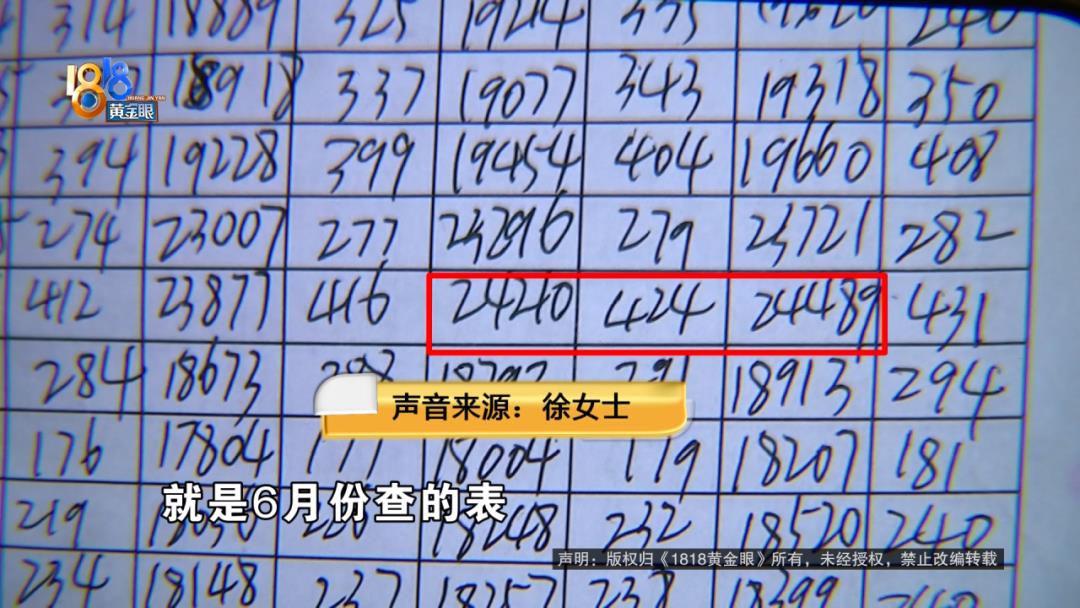 314 18889 325 19214 335 240
1818 18918 337 19077 343 19318 350
黄金眼
394 19228 399 19454 404 19660 408
274 23007 277 23296 279 23721 282
412 23877 416 24210 424 24489 431
284 18673 18913 294
声音来源：徐女士
176 17804 177 18004 179 18207 181
就是6月份查的表
219 18248 232 18520 240
声明：版权归《1818黄金眼》所有，未经授权，禁止改编转载
234 18148 237 18257 238 18399